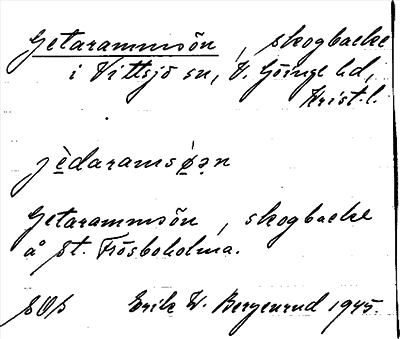 Getarammsön, skogbacke
i Vittsjö sn, V. Göinge hd,
Krist. l.
jèdaramsǿən
Getarammsön, skogbacke
å St. Frösboholma.
Erik W. Bergenrud 1945.